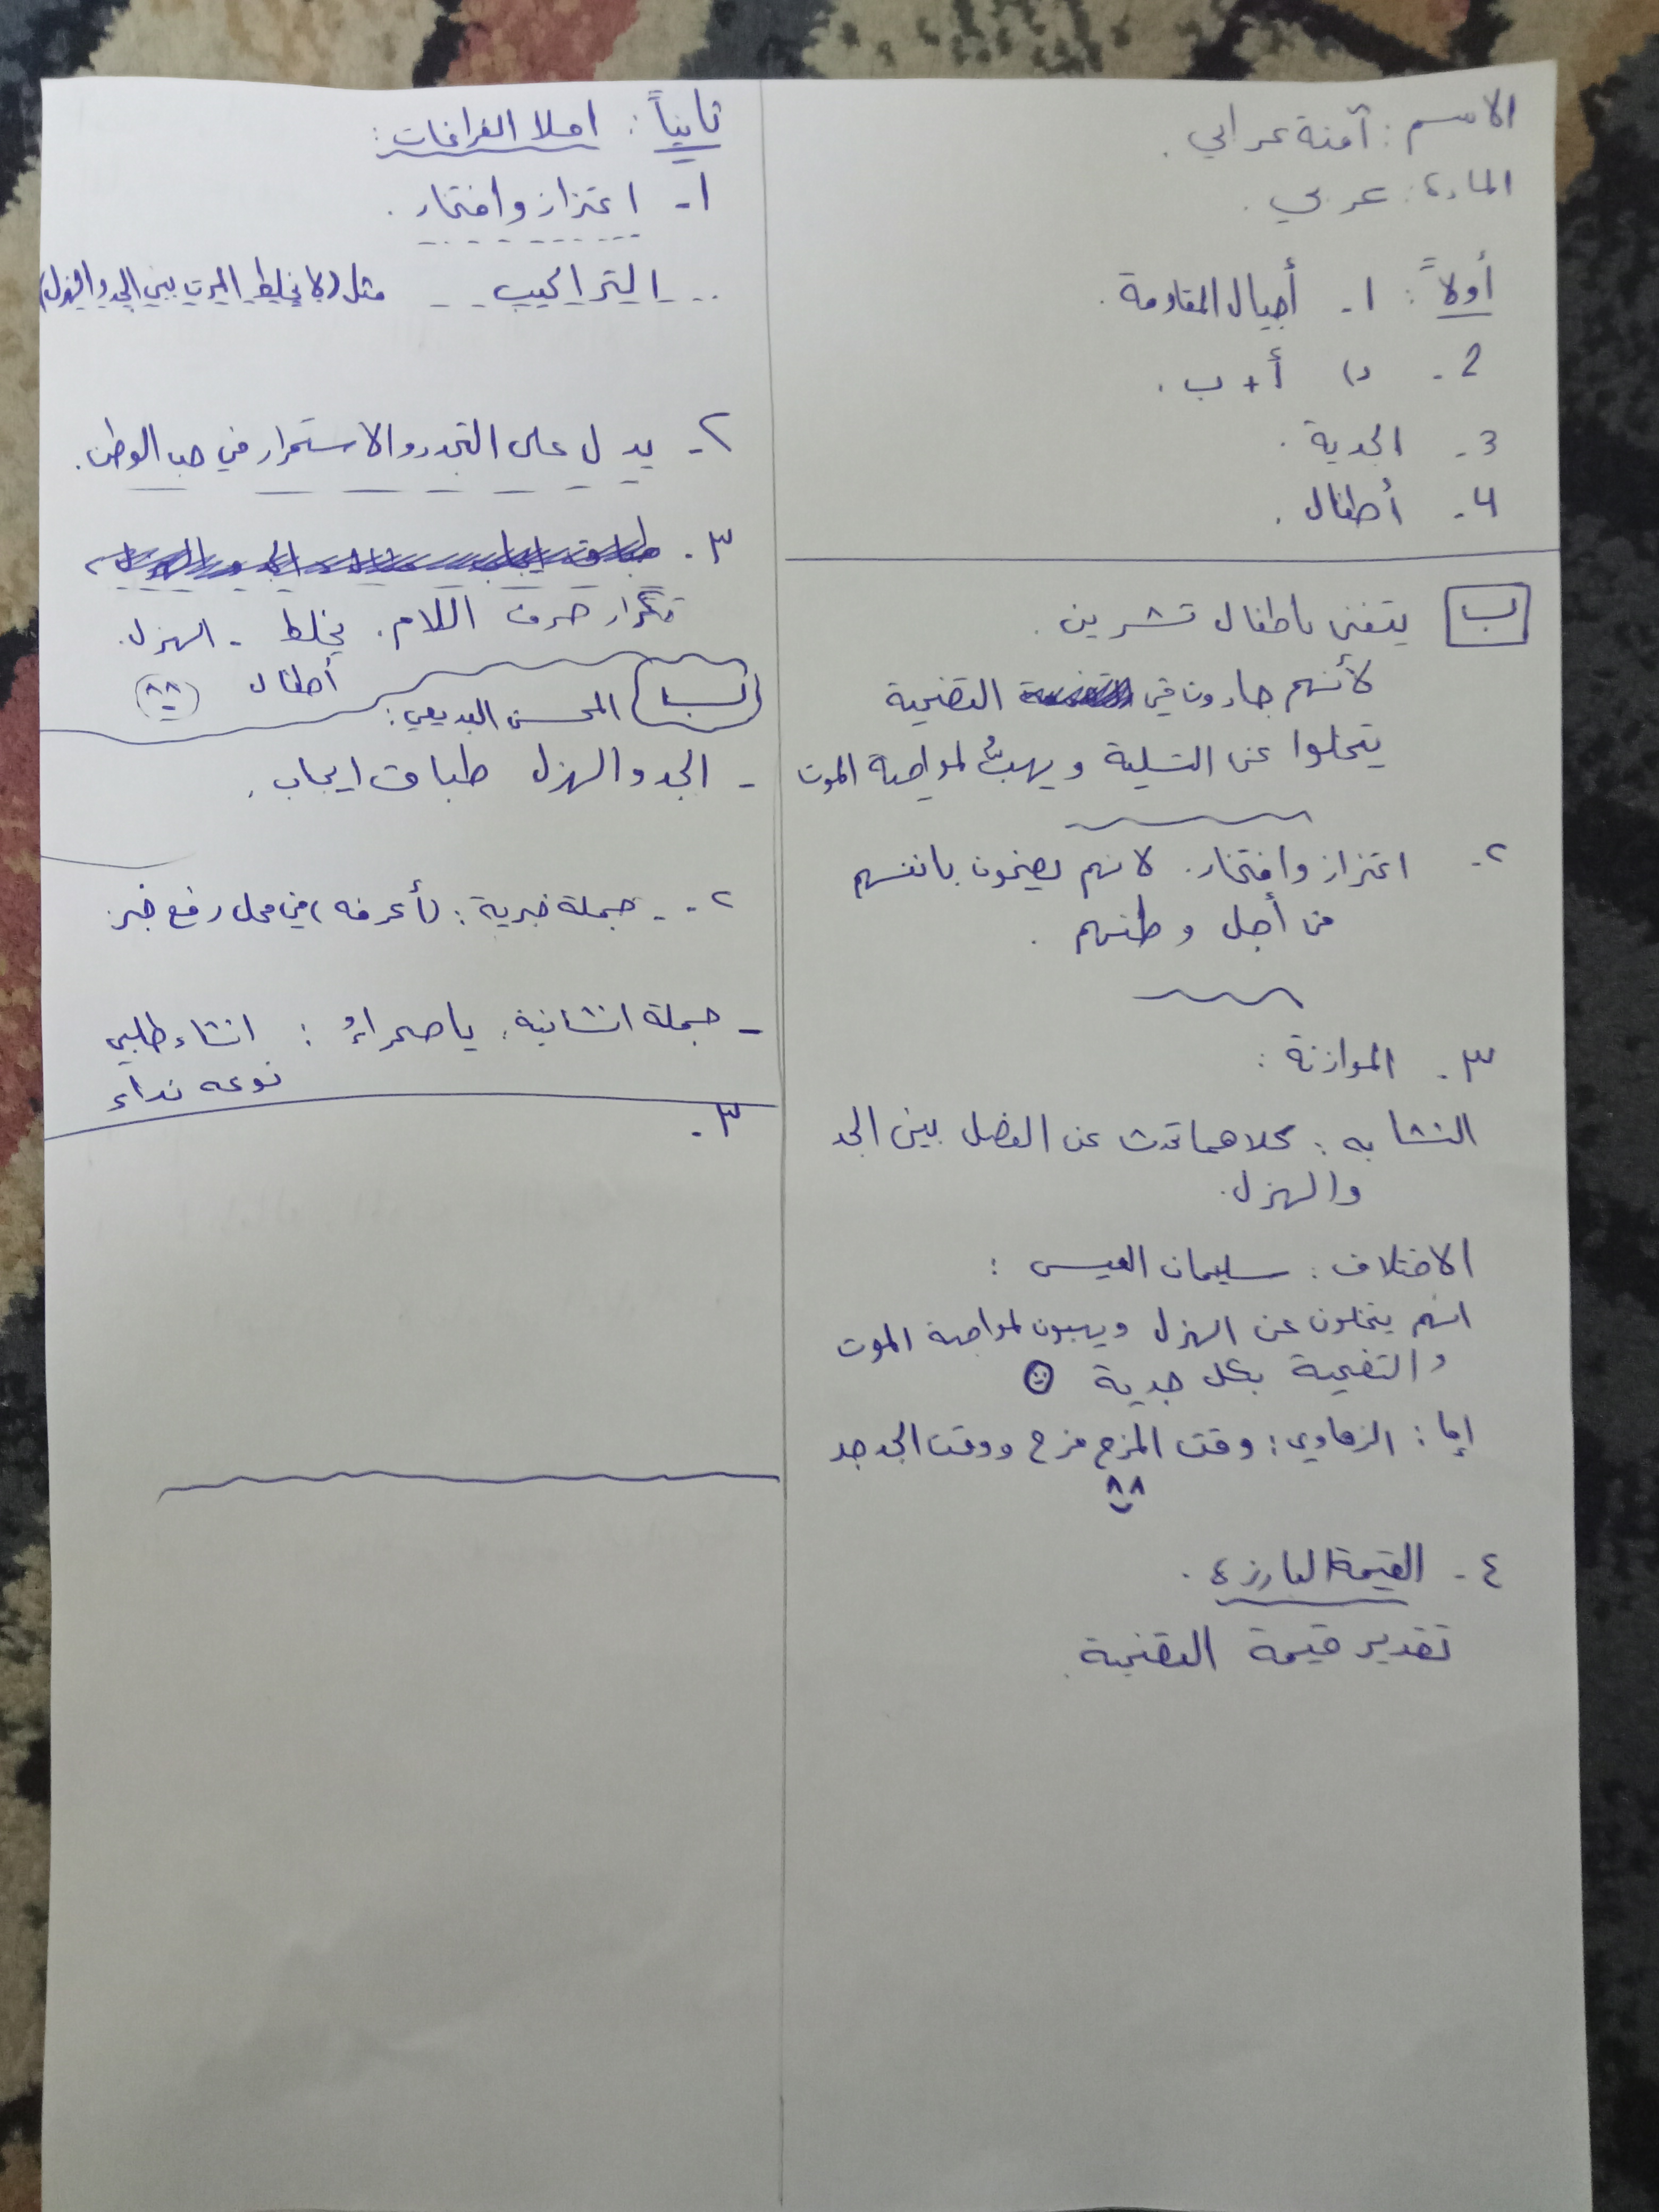 الاسم : آمنة عرابي .
المادة : عربي .
أولاً : ١- أجيال المقاومة .
2 - د) أ + ب .
3 - الجدية .
4 - أطفال .
ب يتغنى باطفال تشرين .
لأنهم جادون في التضحية
يتخلوا عن التسلية ويهبُّ لمواجهة الموت
٢- اعتزاز وافتخار . لانهم يضحون بانفسهم
من أجل وطنهم .
٣ - الموازنة :
التشابه : كلاهما تحدث عن الفصل بين الجد
والهزل .
الاختلاف : سليمان العيسى :
انهم يتخلون عن الهزل ويهبون لمواجهة الموت
والتضحية بكل جدية
إما : الزهاوي : وقت المزح مزح ووقت الجد جد
٤ - القيمة البارزة .
تقدير قيمة التضحية .
ثانياً : املا الفراغات :
١- اعتزاز وافتخار .
التراكيب مثل (لا يخلط الموت بين الجد والهزل)
٢- يدل على التجدد والاستمرار في حب الوطن .
٣ - طباق ايجاب الجد والهزل
تكرار حرف اللام . يخلط - الهزل .
أطفال
ب المحسن البديعي :
- الجد والهزل طباق ايجاب .
٢ - - جملة خبرية : (أعرفه) في محل رفع خبر
- جملة انشائية : يا صحراءُ : انشاء طلبي
نوعه نداء
٣ -